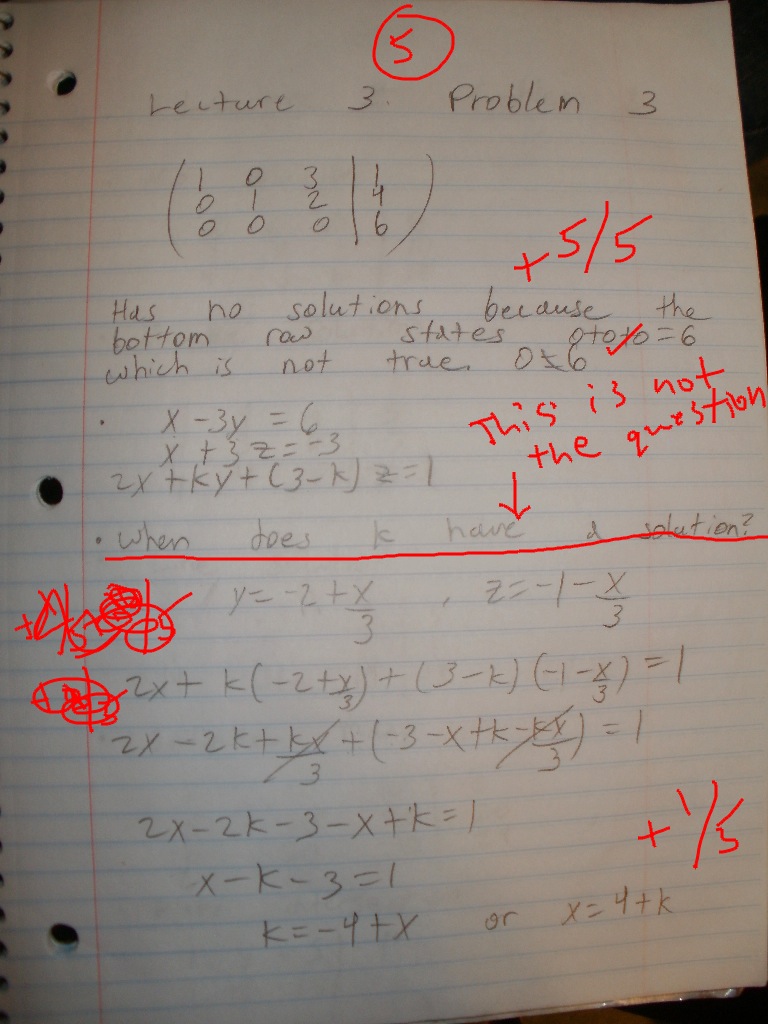 5
Lecture 3. Problem 3
1 0 3 | 1
0 1 2 | 4
0 0 0 | 6
+5/5
Has no solutions because the
bottom row states 0+0+0=6
which is not true. 0≠6
This is not
the question
· x - 3y = 6
x + 3z = -3
2x + ky + (3-k) z = 1
· when does k have a solution?
y = -2 + x/3 , z = -1 - x/3
2x + k(-2+x/3) + (3-k)(-1-x/3) = 1
2x - 2k + kx/3 + (-3 - x + k - kx/3) = 1
2x - 2k - 3 - x + k = 1
+1/5
x - k - 3 = 1
k = -4 + x or x = 4+k